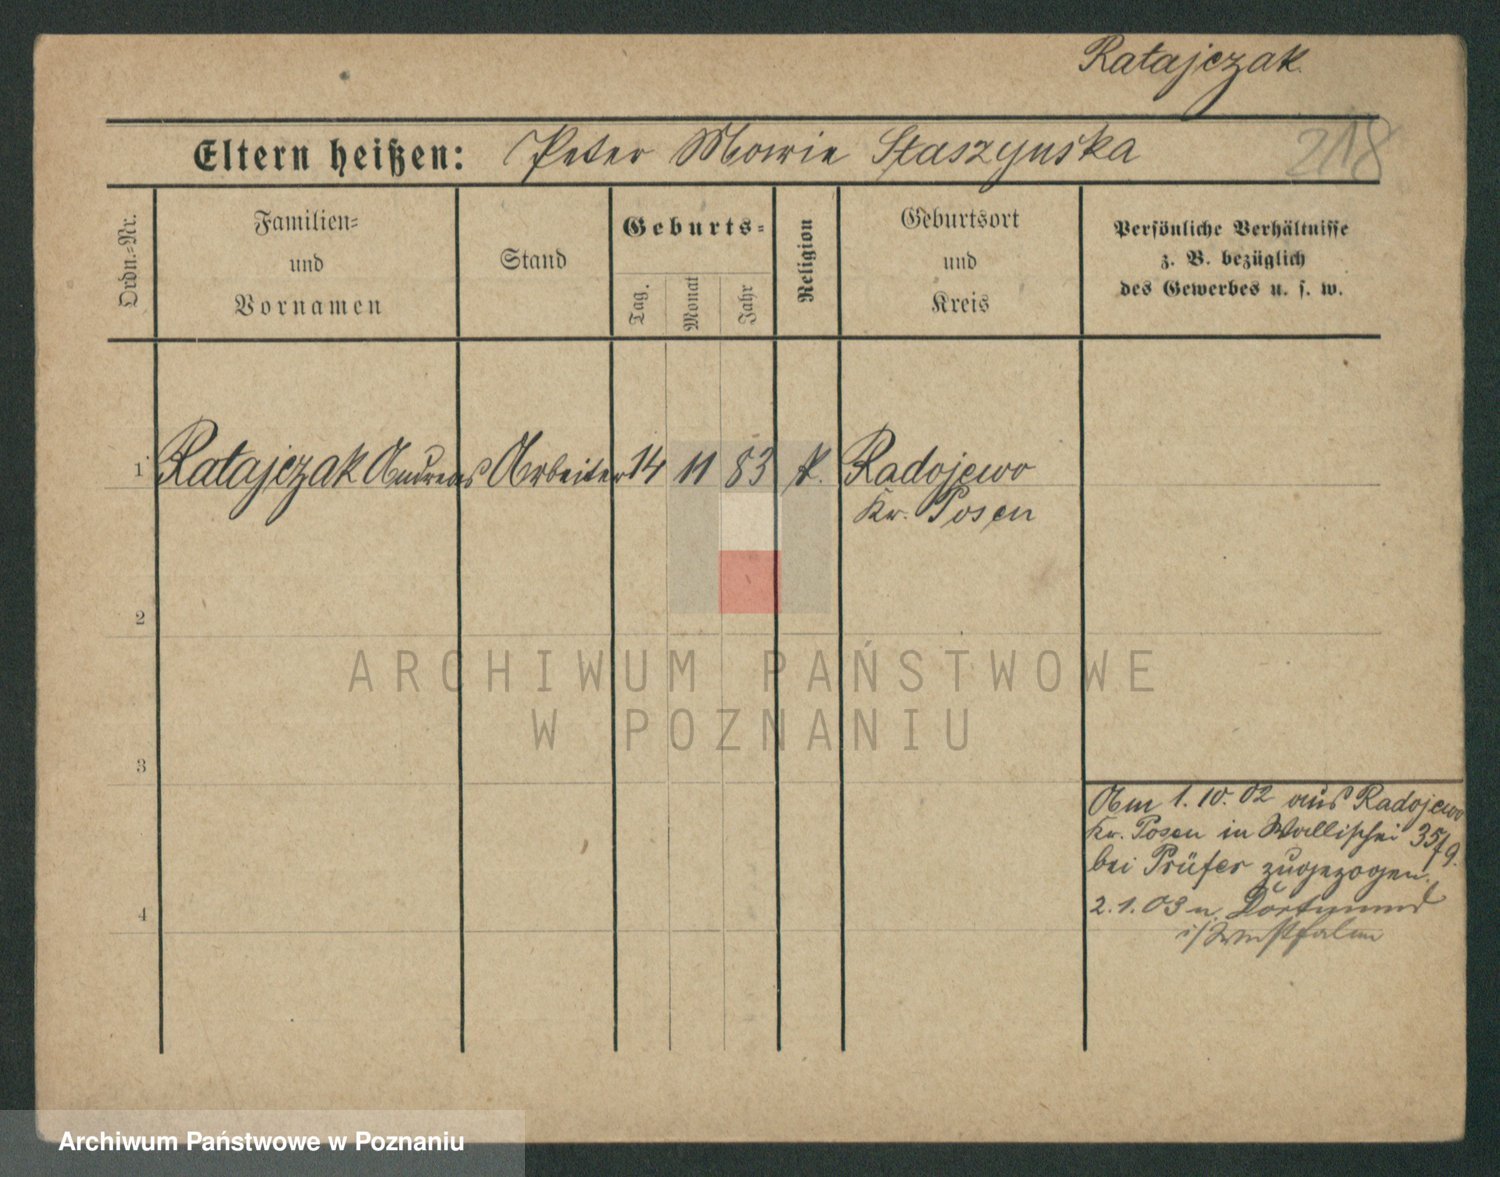 Ratajczak.
Eltern heißen: Peter Marie Staszyńska
218
Ordn.-Nr.
Familien-
und
Vornamen
Stand
Geburts-
Tag.
Monat
Jahr
Religion
Geburtsort
und
Kreis
Persönliche Verhältnisse
z. B. bezüglich
des Gewerbes u. s. w.
1 Ratajczak Andreas Arbeiter 14 11 83 k. Radojewo
Kr. Posen
2
3
4
Am 1.10.02 aus Radojewo
Kr. Posen in Wallischei 35/9.
bei Prüfer zugezogen.
2.1.03 n. Dortmund
i/Westfalen
ARCHIWUM PAŃSTWOWE
W POZNANIU
Archiwum Państwowe w Poznaniu